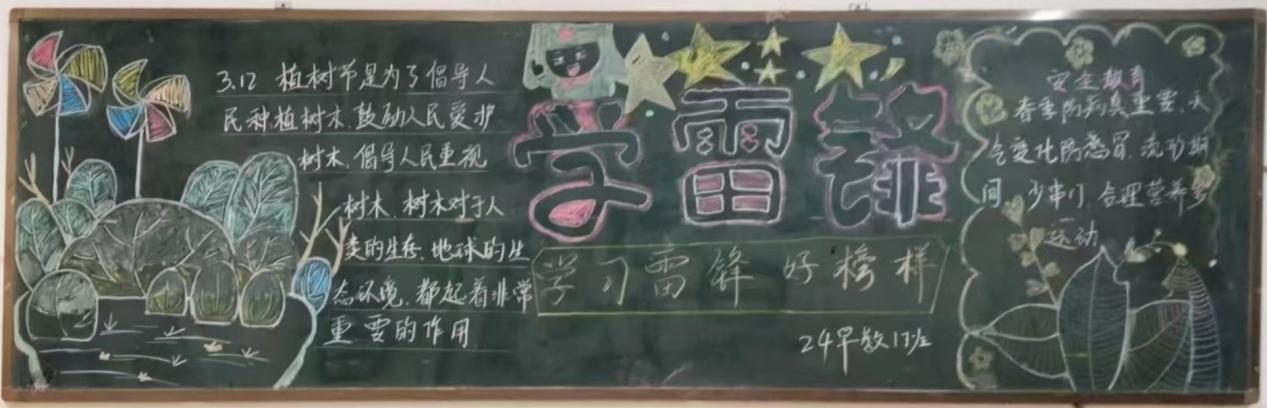 3.12 植树节是为了倡导人
民种植树木,鼓励人民爱护
树木,倡导人民重视
树木,树木对于人
类的生存,地球的生
态环境,都起着非常
重要的作用
学雷锋
学习雷锋好榜样
24早教1班
安全教育
春季防病真重要,天
气变化防感冒,流行期
间,少串门,合理营养多
运动